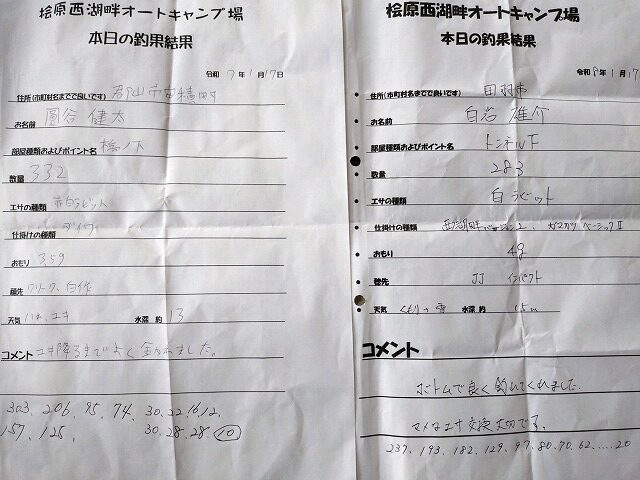 桧原西湖畔オートキャンプ場
本日の釣果結果
令和 7年 1月 17日
住所(市町村名までで良いです) 郡山市安積町
お名前 圓谷 健太
部屋種類およびポイント名 橋ノ下
数量 332
エサの種類 赤白ラビット
仕掛けの種類 ダイワ
おもり 3.5g
穂先 クリーク、自作
天気 ハレ、ユキ 水深 約 13
コメント ユキ降るまでよく釣れました。
303. 206. 95. 74. 30. 22. 16. 12.
157. 125. 30. 28. 28. 10
桧原西湖畔オートキャンプ場
本日の釣果結果
令和 7年 1月 17
住所(市町村名までで良いです) 田村市
お名前 白岩 雄介
部屋種類およびポイント名 トンネル下
数量 283
エサの種類 白ラビット
仕掛けの種類 西湖畔バージョン2、 ベーシックⅡ
おもり 4g
穂先 JJ インパクト
天気 くもりっ雪 水深 約 15m
コメント
ボトムで良く釣れてくれました。
マメなエサ交換大切です。
237. 193. 182. 129. 97. 80. 70. 62.....20